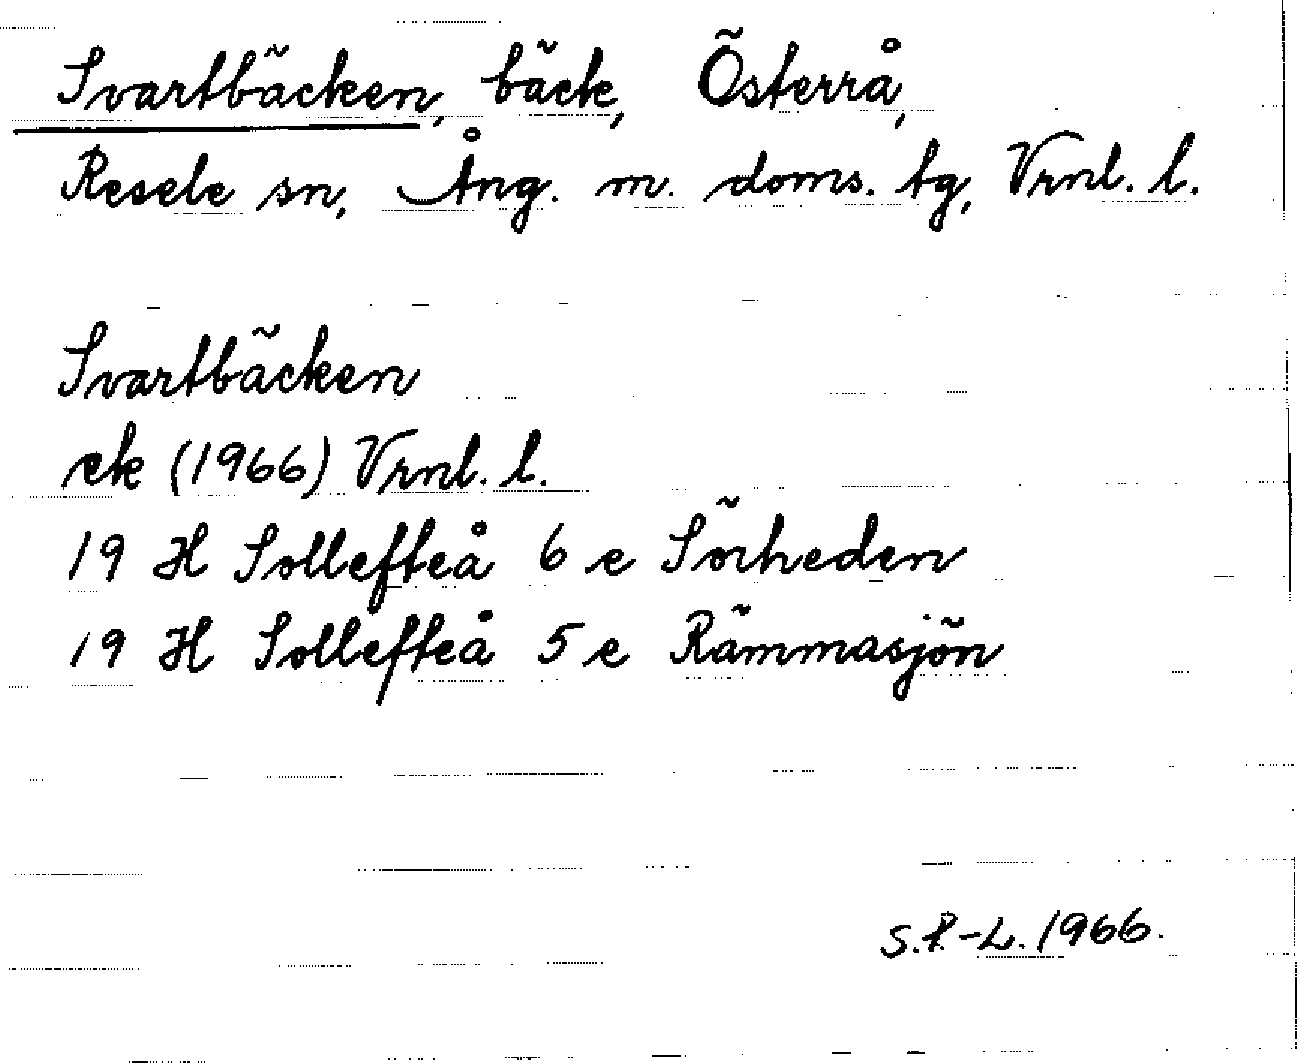 Svartbäcken, bäck, Österrå,
Resele sn, Ång. m. doms. tg, Vrnl. l.
Svartbäcken
ek (1966) Vrnl. l.
19 H Sollefteå 6 e Sörheden
19 H Sollefteå 5 e Rämmasjön
S.P.-L. 1966.